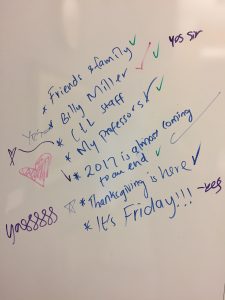 * Friends & family
yas sir
* Billy Miller
* CLL staff
* My professors
* 2017 is almost coming
to an end
* Thanksgiving is here
* It's Friday!!! -yes
yassssss